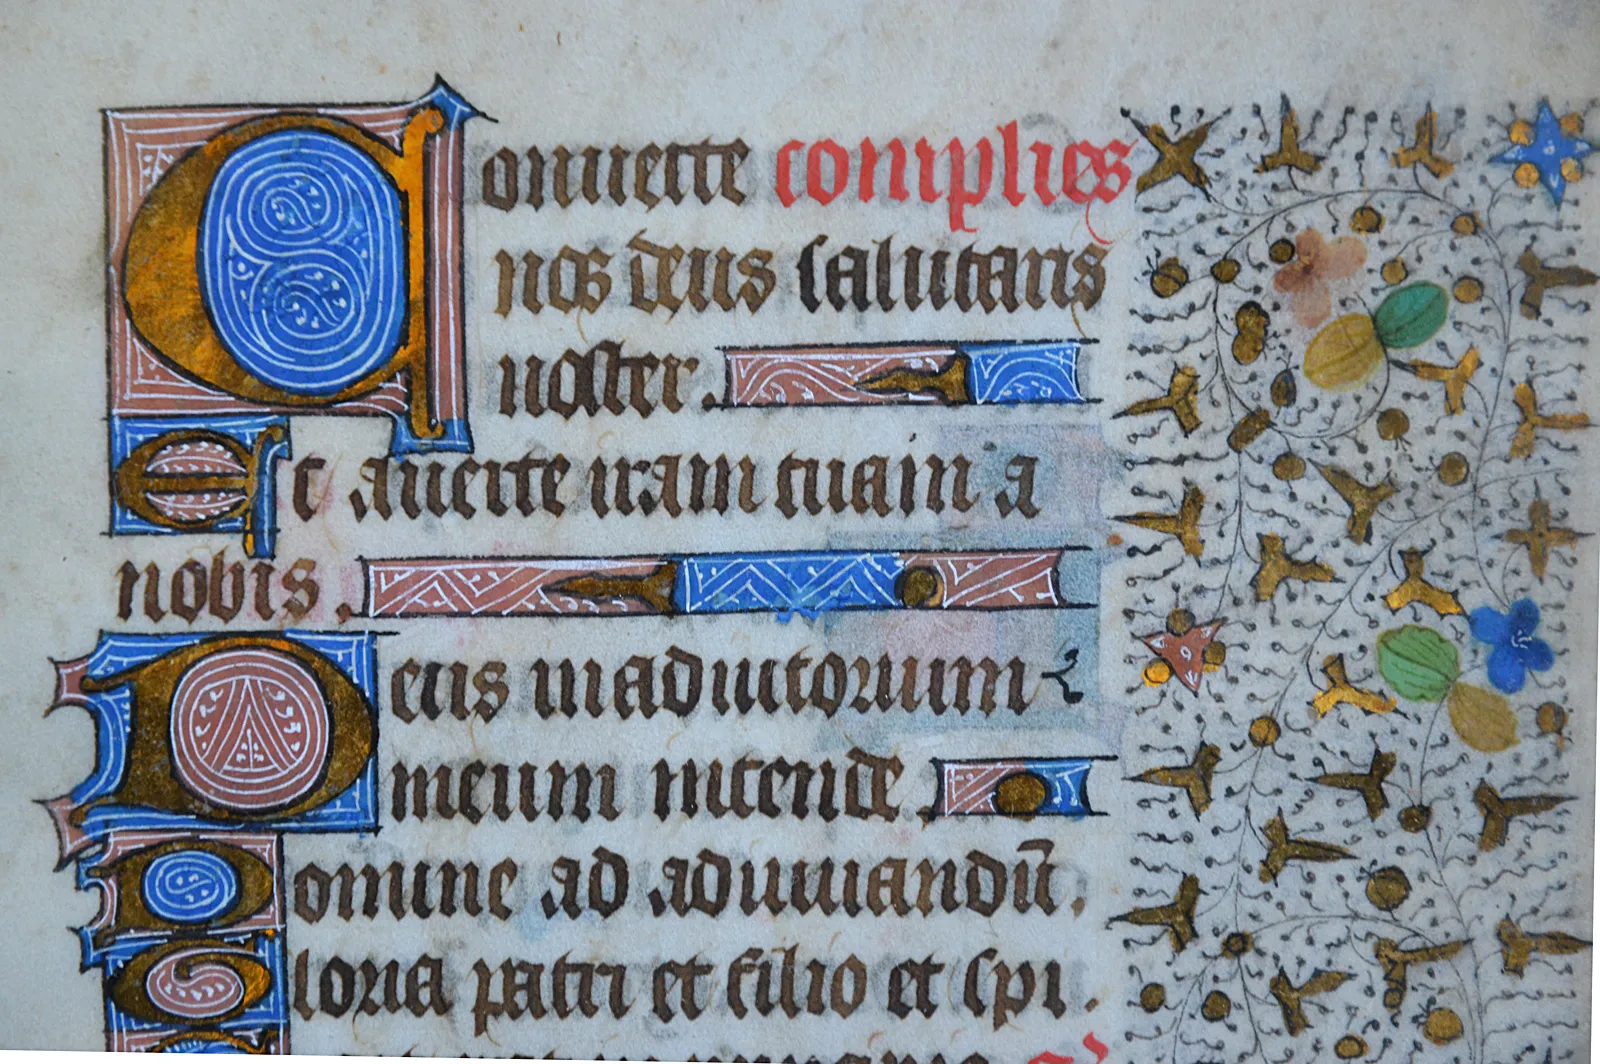 Conuerte complies
nos deus salutaris
noster.
Et auerte iram tuam a
nobis.
Deus in adiutorium
meum intende.
Domine ad adiuuandū.
Gloria patri et filio et spi.